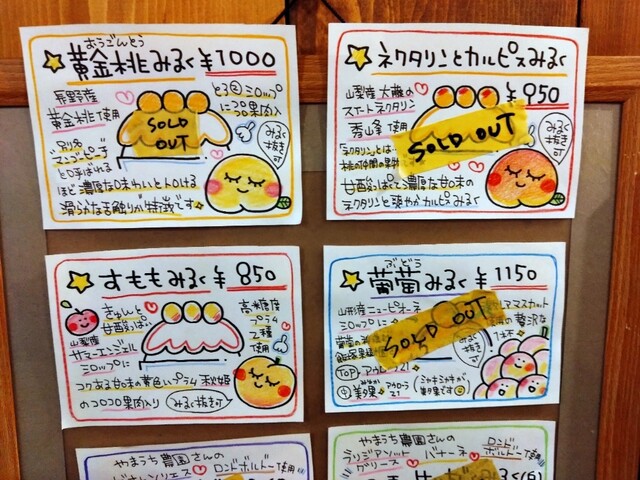 おうごんとう
黄金桃みるく ¥1000
長野産
黄金桃使用
とろとろシロップ
にコロコロ果肉入
SOLD
OUT
みるく
抜き
可
別名
マンゴーピーチ
と呼ばれる
ほど濃厚な味わいととろける
滑らかな舌触りが特徴です
ネクタリンとカルピスみるく
¥950
山梨産 大藤の
スイートネクタリン
秀峰使用
SOLD OUT
みるく
抜き
可
ネクタリンとは
桃の仲間の果物
甘酸っぱくて濃厚な甘味の
ネクタリンと爽やかカルピスみるく
すももみるく ¥850
きゅんと
甘酸っぱい
山梨産
サマーエンジェル
シロップに
高糖度
プラム
2種
使用
コクある甘味の黄色いプラム 秋姫
のコロコロ果肉入り
みるく抜き可
ぶどう
葡萄みるく ¥1150
山形産ニューピオーネ
シロップに
SOLD OUT
TOP
シャキシャキが
やまうち農園さんの
ロンドボルドー使用
やまうち農園さんの
ロンド
ボルドー使用
バナーネ